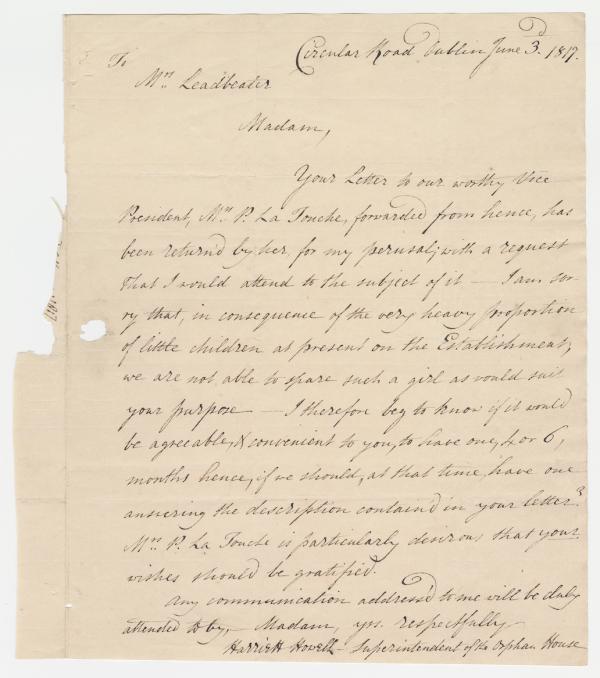 Circular Road Dublin June 3.d 1817.
To
Mrs Leadbeater
Madam,
Your Letter to our worthy Vice
President, Mrs P. La Touche, forwarded from hence, has
been return'd by her, for my perusal; with a request
that I would attend to the subject of it — I am sor-
ry that, in consequence of the very heavy proportion
of little children at present on the Establishment,
we are not able to spare such a girl as would suit
your purpose — I therefore beg to know if it would
be agreeable, & convenient to you, to have one, 4 or 6,
months hence, if we should, at that time, have one
answering the description contain'd in your letter?
Mrs P. La Touche is particularly desirous that your
wishes should be gratified.
Any communication address'd to me will be duly
attended to by,— Madam, yrs. respectfully—
Harriett Howell— Superintendent of the Orphan House